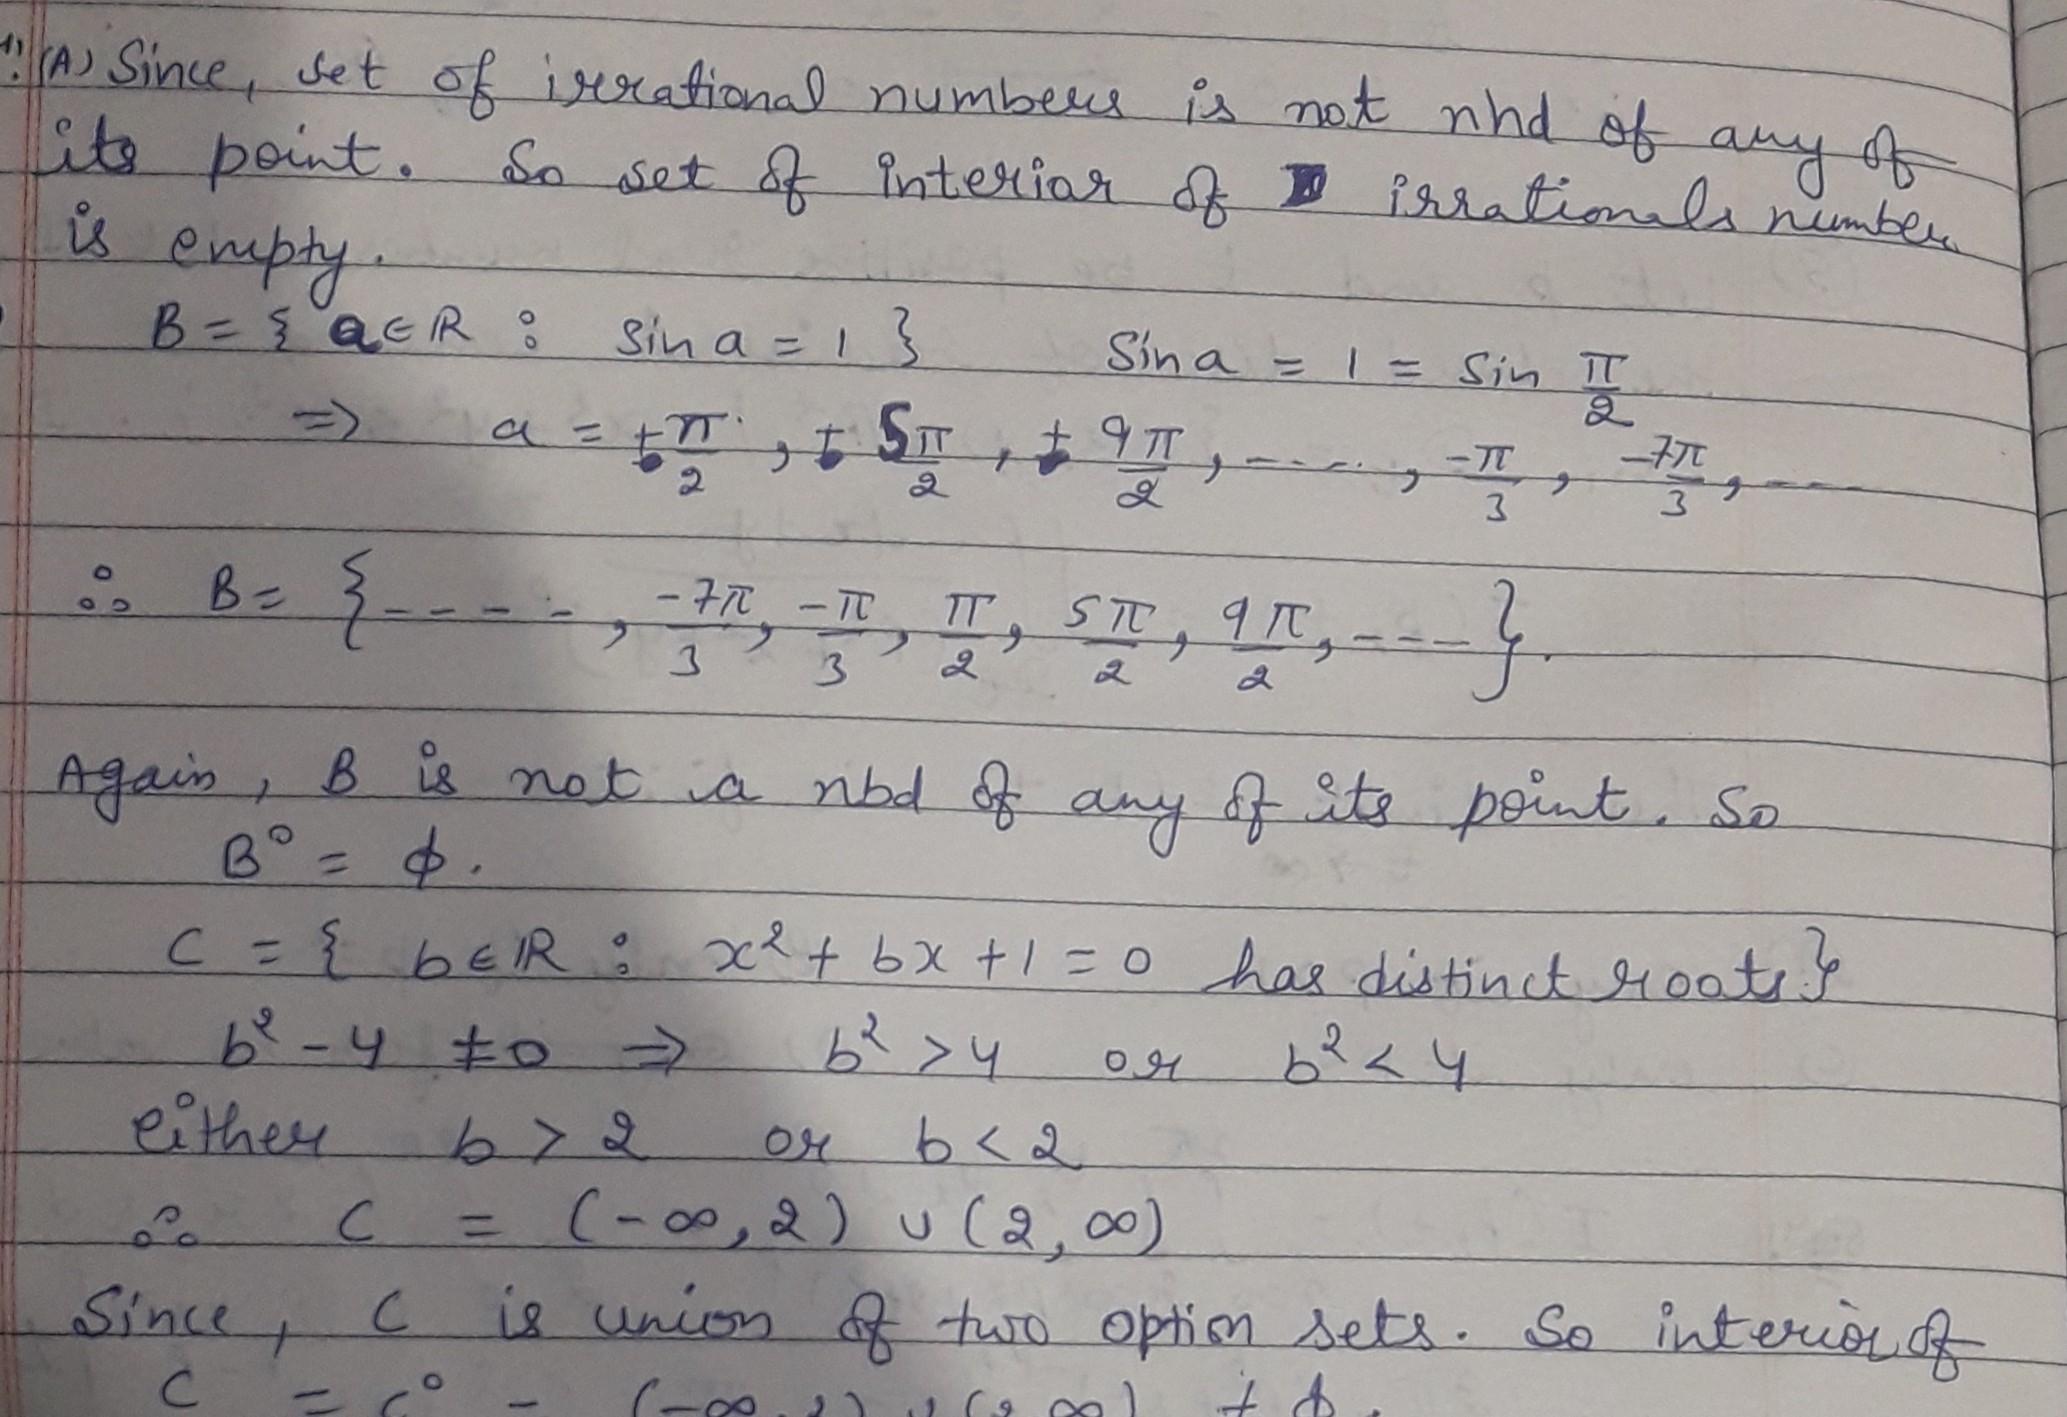 1) (A) Since, set of irrational numbers is not nhd of any of
its point. So set of interior of irrationals number
is empty.
B = { a ∈ ℝ : sin a = 1 } Sin a = 1 = sin π/2
⇒ a = ±π/2, ± 5π/2, ± 9π/2, ----, -π/3, -7π/3, ----
∴ B = { -----, -7π/3, -π/3, π/2, 5π/2, 9π/2, ---- }.
Again, B is not a nbd of any of its point. So
B° = ϕ.
C = { b ∈ ℝ : x² + bx + 1 = 0 has distinct roots }
b² - 4 ≠ 0 ⇒ b² > 4 or b² < 4
either b > 2 or b < 2
∴ C = (-∞, 2) ∪ (2, ∞)
Since, C is union of two option sets. So interior of
C = C° = (-∞, 2) ∪ (2, ∞) ≠ ϕ.